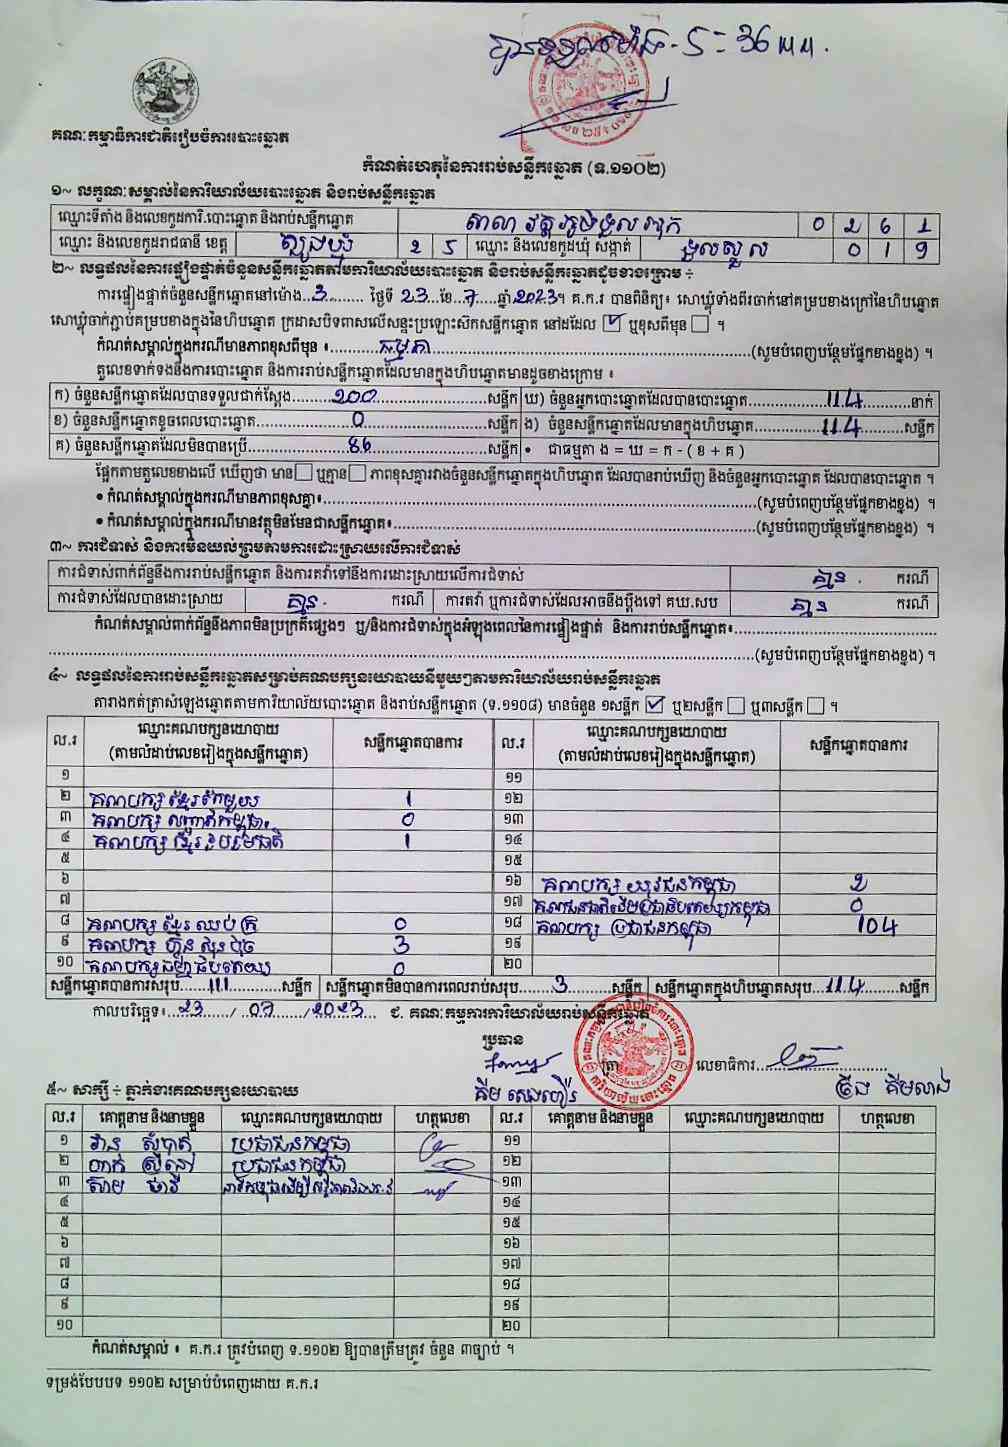 បានទទួលម៉ោង - 5 = 36 នាទី.
គណៈកម្មាធិការជាតិរៀបចំការបោះឆ្នោត
កំណត់ហេតុនៃការរាប់សន្លឹកឆ្នោត (ទ.១១០២)
១~ លក្ខណៈសម្គាល់នៃការិយាល័យបោះឆ្នោត និងរាប់សន្លឹកឆ្នោត
ឈ្មោះទីតាំង និងលេខកូដការិ.បោះឆ្នោត និងរាប់សន្លឹកឆ្នោត 0 2 6 1
ឈ្មោះ និងលេខកូដរាជធានី ខេត្ត ត្បូងឃ្មុំ 2 5 ឈ្មោះ និងលេខកូដឃុំ សង្កាត់ 0 1 9
២~ លទ្ធផលនៃការផ្ទៀងផ្ទាត់ចំនួនសន្លឹកឆ្នោតតាមការិយាល័យបោះឆ្នោត និងរាប់សន្លឹកឆ្នោតដូចខាងក្រោម ÷
ការផ្ទៀងផ្ទាត់ចំនួនសន្លឹកឆ្នោតនៅម៉ោង...3......... ថ្ងៃទី 23 ខែ...7.....ឆ្នាំ.2023។ គ.ក.រ បានពិនិត្យ៖ សោឃ្លុំទាំងពីរចាក់នៅគម្របខាងក្រៅនៃហិបឆ្នោត
សោឃ្លុំចាក់ភ្ជាប់គម្របខាងក្នុងនៃហិបឆ្នោត ក្រដាសបិទពាសលើសន្ទះប្រឡោះស៊កសន្លឹកឆ្នោត នៅដដែល ☑ ឬខុសពីមុន ☐ ។
កំណត់សម្គាល់ក្នុងករណីមានភាពខុសពីមុន ៖..........ធម្មតា..........(សូមបំពេញបន្ថែមផ្នែកខាងខ្នង) ។
តួលេខទាក់ទងនឹងការបោះឆ្នោត និងការរាប់សន្លឹកឆ្នោតដែលមានក្នុងហិបឆ្នោតមានដូចខាងក្រោម ៖
ក) ចំនួនសន្លឹកឆ្នោតដែលបានទទួលជាក់ស្តែង..........200..........សន្លឹក ឃ) ចំនួនអ្នកបោះឆ្នោតដែលបានបោះឆ្នោត..........114..........នាក់
ខ) ចំនួនសន្លឹកឆ្នោតខូចពេលបោះឆ្នោត..........0..........សន្លឹក ង) ចំនួនសន្លឹកឆ្នោតដែលមានក្នុងហិបឆ្នោត..........114..........សន្លឹក
គ) ចំនួនសន្លឹកឆ្នោតដែលមិនបានប្រើ..........86..........សន្លឹក • ជាធម្មតា ង = ឃ = ក - ( ខ + គ )
ផ្អែកតាមតួលេខខាងលើ ឃើញថា មាន ☐ ឬគ្មាន ☐ ភាពខុសគ្នារវាងចំនួនសន្លឹកឆ្នោតក្នុងហិបឆ្នោត ដែលបានរាប់ឃើញ និងចំនួនអ្នកបោះឆ្នោត ដែលបានបោះឆ្នោត ។
• កំណត់សម្គាល់ក្នុងករណីមានភាពខុសគ្នា៖..........(សូមបំពេញបន្ថែមផ្នែកខាងខ្នង) ។
• កំណត់សម្គាល់ក្នុងករណីមានវត្ថុមិនមែនជាសន្លឹកឆ្នោត៖..........(សូមបំពេញបន្ថែមផ្នែកខាងខ្នង) ។
៣~ ការជំទាស់ និងការមិនយល់ព្រមតាមការដោះស្រាយលើការជំទាស់
ការជំទាស់ពាក់ព័ន្ធនឹងការរាប់សន្លឹកឆ្នោត និងការតវ៉ាទៅនឹងការដោះស្រាយលើការជំទាស់ គ្មាន . ករណី
ការជំទាស់ដែលបានដោះស្រាយ គ្មាន . ករណី ការតវ៉ា ឬការជំទាស់ដែលអាចនឹងប្តឹងទៅ គឃ.សប គ្មាន ករណី
កំណត់សម្គាល់ពាក់ព័ន្ធនឹងភាពមិនប្រក្រតីផ្សេងៗ ឬ/និងការជំទាស់ក្នុងអំឡុងពេលនៃការផ្ទៀងផ្ទាត់ និងការរាប់សន្លឹកឆ្នោត៖..........
..........(សូមបំពេញបន្ថែមផ្នែកខាងខ្នង) ។
៤~ លទ្ធផលនៃការរាប់សន្លឹកឆ្នោតសម្រាប់គណបក្សនយោបាយនីមួយៗតាមការិយាល័យរាប់សន្លឹកឆ្នោត
តារាងកត់ត្រាសំឡេងឆ្នោតតាមការិយាល័យបោះឆ្នោត និងរាប់សន្លឹកឆ្នោត (ទ.១១០៨) មានចំនួន ១សន្លឹក ☑ ឬ២សន្លឹក ☐ ឬ៣សន្លឹក ☐ ។
ល.រ ឈ្មោះគណបក្សនយោបាយ (តាមលំដាប់លេខរៀងក្នុងសន្លឹកឆ្នោត) សន្លឹកឆ្នោតបានការ ល.រ ឈ្មោះគណបក្សនយោបាយ (តាមលំដាប់លេខរៀងក្នុងសន្លឹកឆ្នោត) សន្លឹកឆ្នោតបានការ
១ ១១
២ គណបក្ស ខ្មែរតែមួយ 1 ១២
៣ គណបក្ស សញ្ជាតិកម្ពុជា 0 ១៣
៤ គណបក្ស ខ្មែររួបរួមជាតិ 1 ១៤
៥ ១៥
៦ ១៦ គណបក្ស យុវជនកម្ពុជា 2
៧ ១៧ 0
៨ គណបក្ស ខ្មែរ ឈប់ ក្រ 0 ១៨ គណបក្ស ប្រជាជនកម្ពុជា 104
៩ គណបក្ស ហ្វ៊ុនស៊ិនប៉ិច 3 ១៩
១០ គណបក្ស ធម្មាធិបតេយ្យ 0 ២០
សន្លឹកឆ្នោតបានការសរុប.......111.......សន្លឹក សន្លឹកឆ្នោតមិនបានការពេលរាប់សរុប.......3.......សន្លឹក សន្លឹកឆ្នោតក្នុងហិបឆ្នោតសរុប...114.......សន្លឹក
កាលបរិច្ឆេទ៖....23...../...07...../...2023.... ជ. គណៈកម្មការការិយាល័យរាប់សន្លឹកឆ្នោត
ប្រធាន
ត្រា លេខាធិការ..........
គីម សេងហ៊ឺរ
៥~ សាក្សី ÷ ភ្នាក់ងារគណបក្សនយោបាយ
ល.រ គោត្តនាម និងនាមខ្លួន ឈ្មោះគណបក្សនយោបាយ ហត្ថលេខា ល.រ គោត្តនាម និងនាមខ្លួន ឈ្មោះគណបក្សនយោបាយ ហត្ថលេខា
១ វ៉ាន សំបាត់ ប្រជាជនកម្ពុជា ១១
២ ប្រជាជនកម្ពុជា ១២
៣ ១៣
៤ ១៤
៥ ១៥
៦ ១៦
៧ ១៧
៨ ១៨
៩ ១៩
១០ ២០
កំណត់សម្គាល់ ៖ គ.ក.រ ត្រូវបំពេញ ទ.១១០២ ឱ្យបានត្រឹមត្រូវ ចំនួន ៣ច្បាប់ ។
ទម្រង់បែបបទ ១១០២ សម្រាប់បំពេញដោយ គ.ក.រ